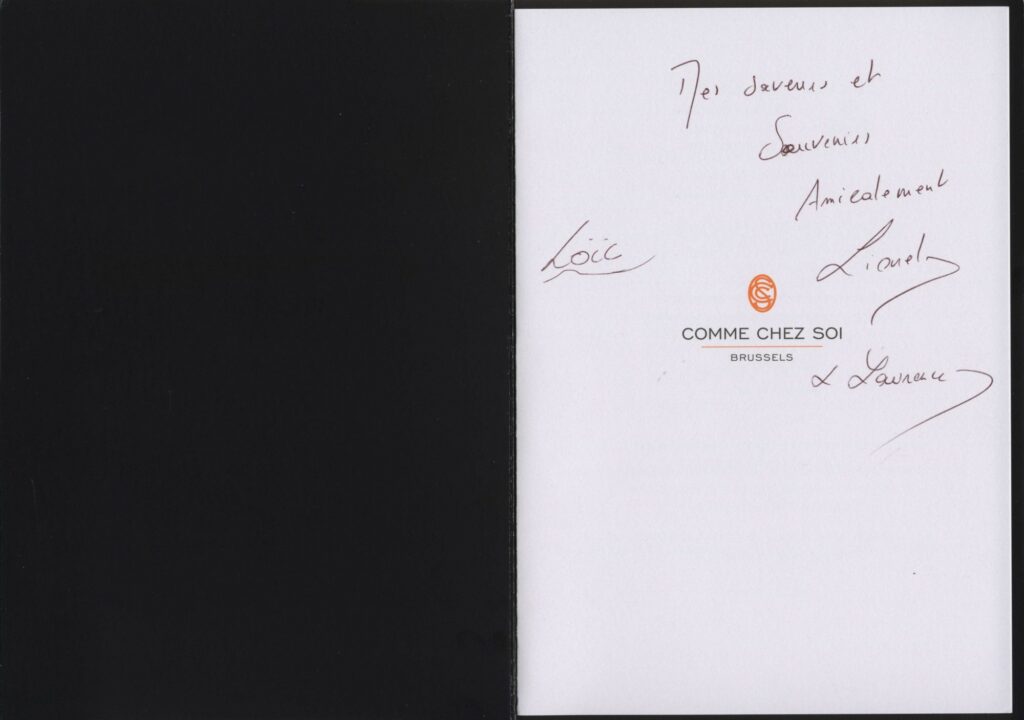 Mes saveurs et
Souvenirs
Amicalement
Lionel
Loïc
COMME CHEZ SOI
BRUSSELS
& Laurence